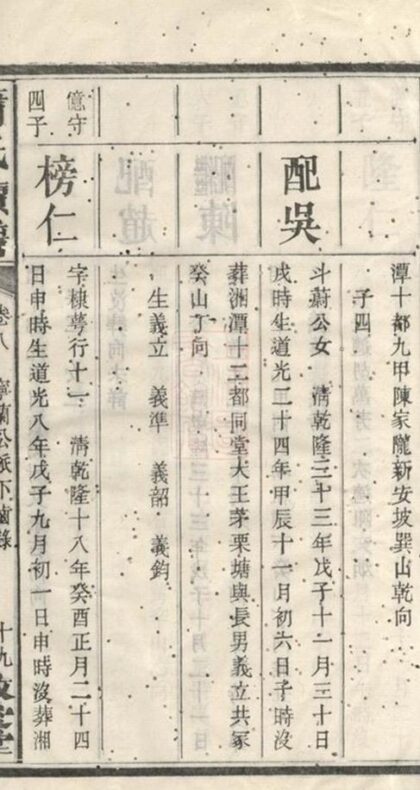 潭十都九甲陳家隴新安坡巽山乾向
子四
配吳
斗蔚公女 清乾隆三十三年戊子十一月三十日
戌時生道光二十四年甲辰十一月初六日子時沒
葬湘潭十三都同堂大王茅栗塘與長男義立共冢
癸山丁向
生義立 義準 義韶 義鈞
億守
四子
榜仁
字棣萼行十一 清乾隆十八年癸酉正月二十四
日申時生道光八年戊子九月初一日申時沒葬湘
卷八 寧蘭公派下齒錄 十九